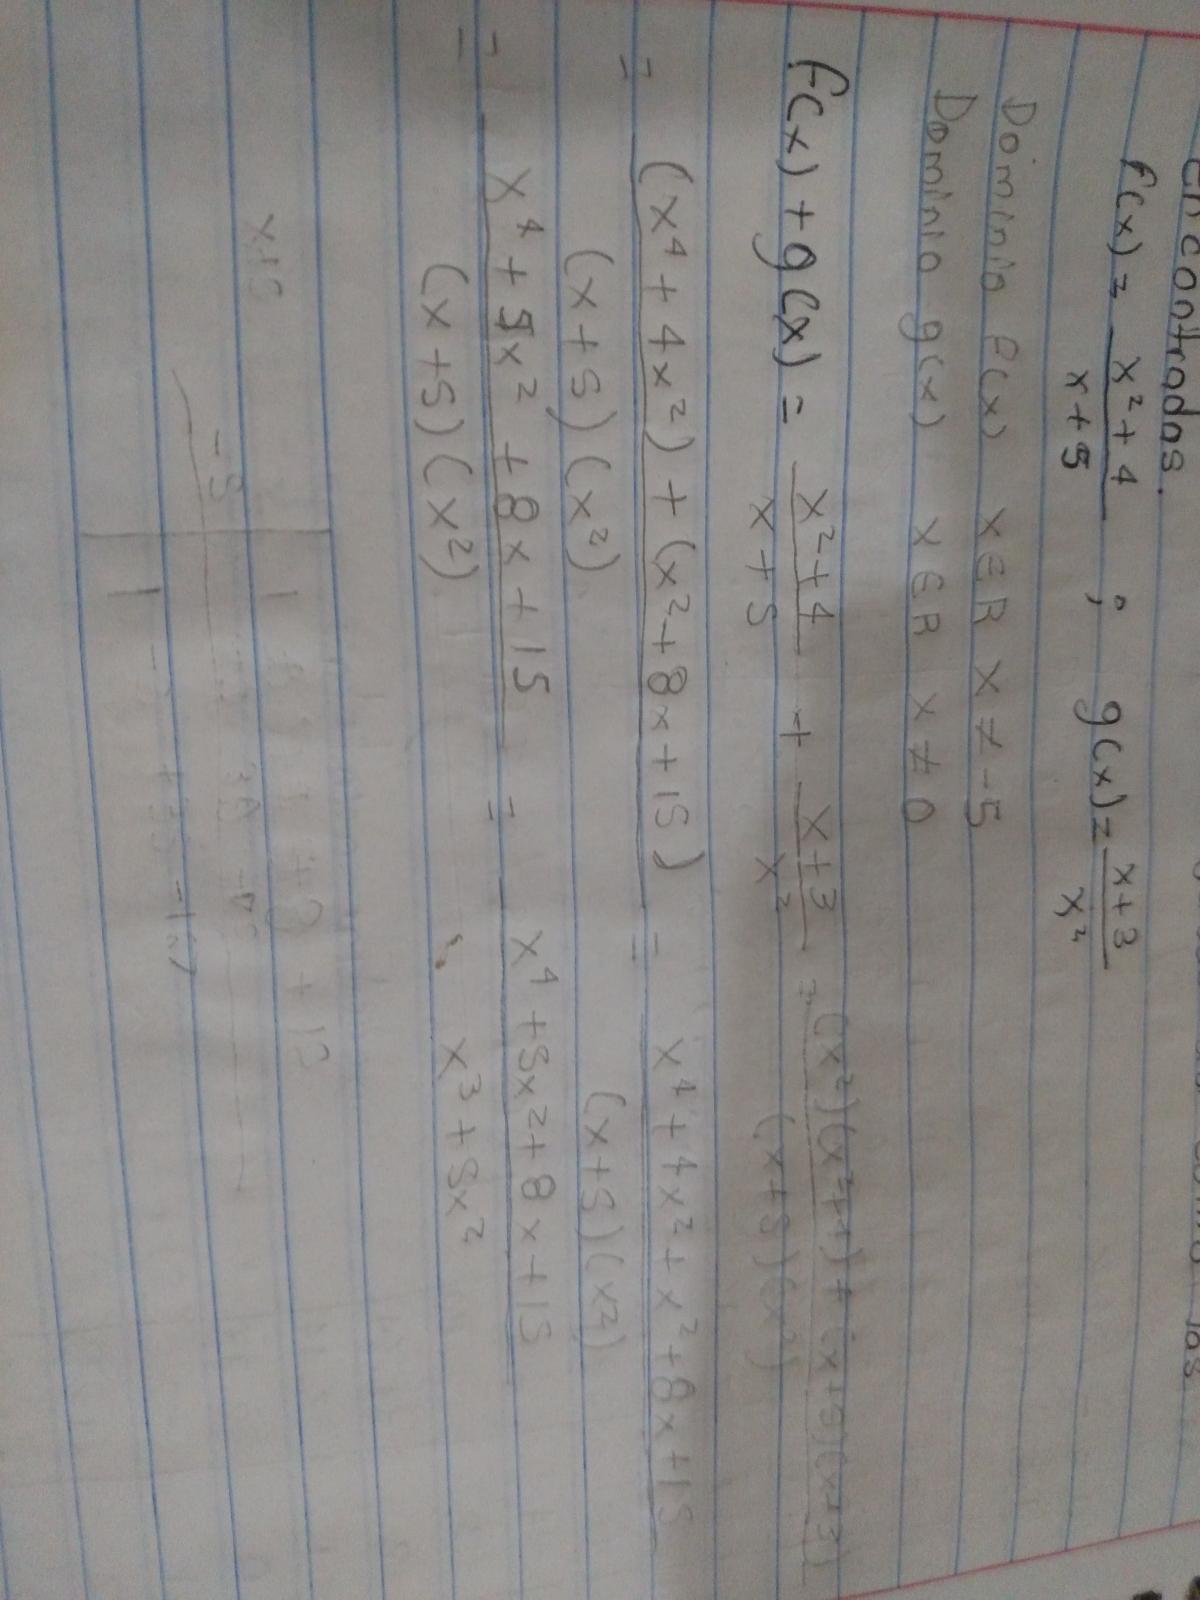 encontradas.
f(x) = x²+4 / x+5 ; g(x) = x+3 / x²
Dominio f(x) x∈R x≠-5
Dominio g(x) x∈R x≠0
f(x)+g(x) = x²+4 / x+5 + x+3 / x² = (x²)(x²+4)+(x+5)(x+3) / (x+5)(x²)
= (x⁴+4x²)+(x²+8x+15) / (x+5)(x²) = x⁴+4x²+x²+8x+15 / (x+5)(x²)
= x⁴+5x²+8x+15 / (x+5)(x²) = x⁴+5x²+8x+15 / x³+5x²